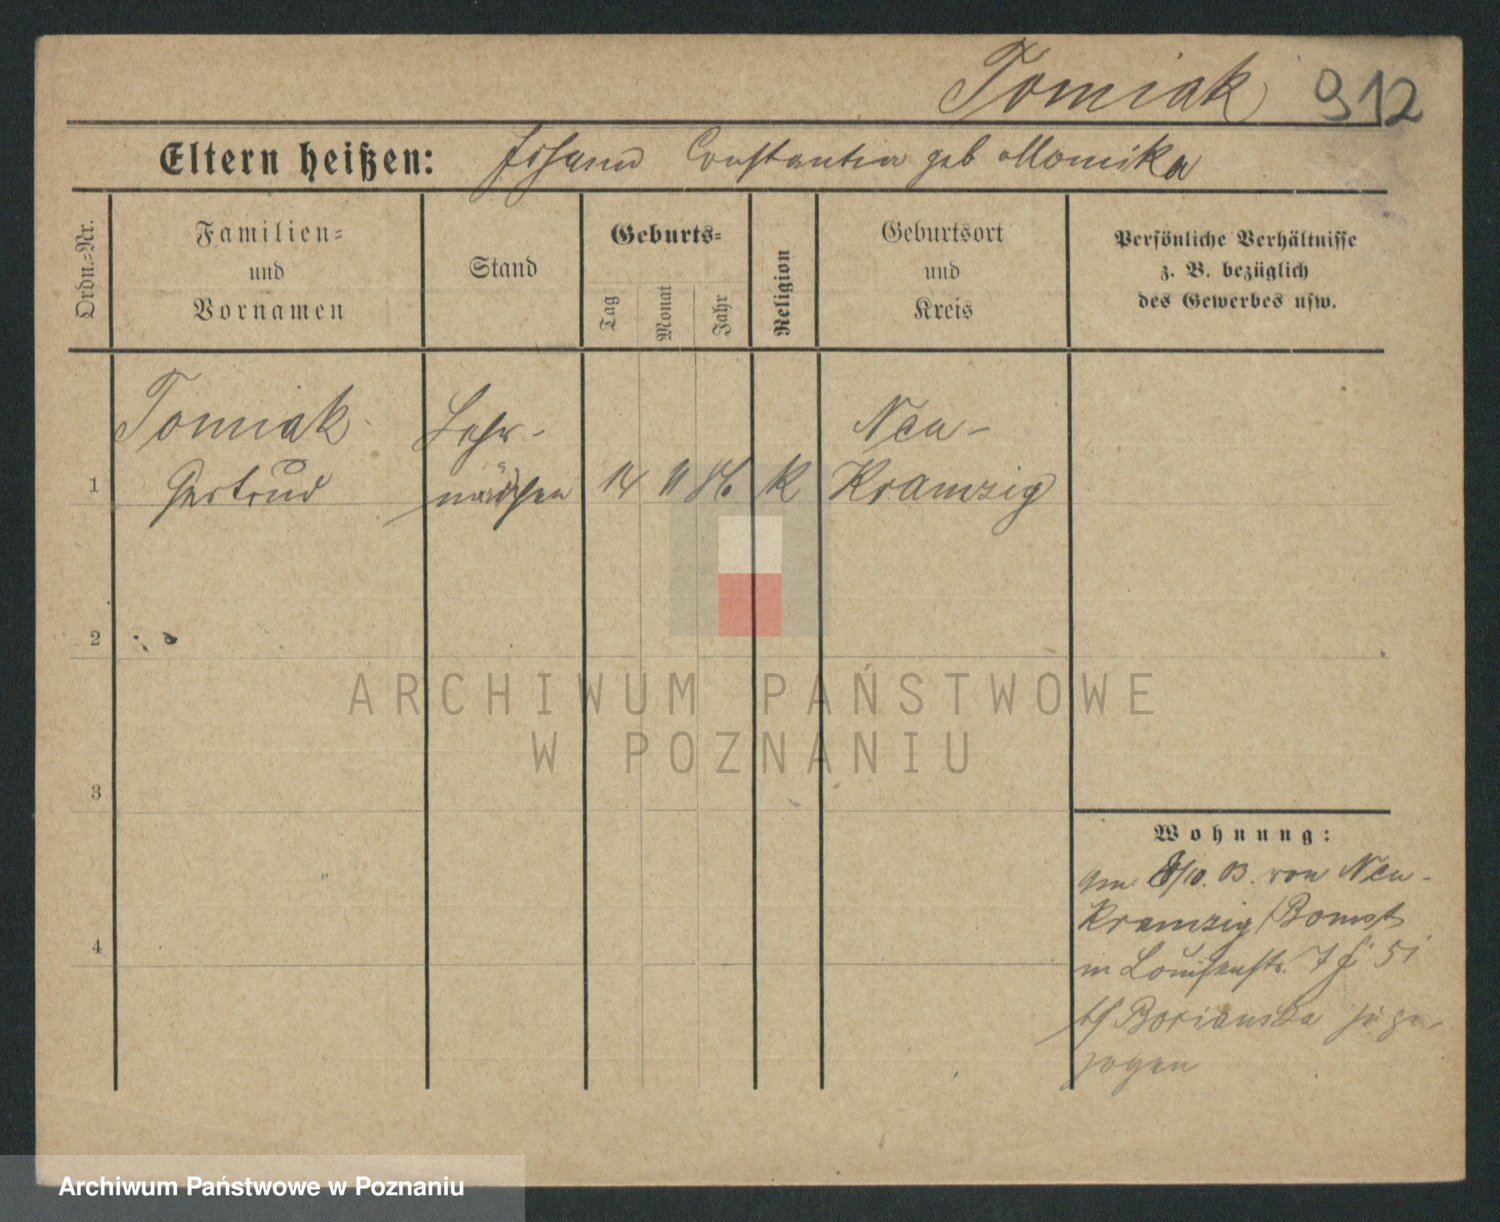 Tomiak 912
Eltern heißen: Johann Constantia geb Momika
Ordn.-Nr.
Familien-
und
Vornamen
Stand
Geburts-
Tag
Monat
Jahr
Religion
Geburtsort
und
Kreis
Persönliche Verhältnisse
z. B. bezüglich
des Gewerbes usw.
Tomiak Lehr- Neu-
1 Gertrud mädchen 14 11 86 K Kramzig
2
3
4
Wohnung:
am 8/10. 03. von Neu-
Kramzig/Bomst
in Louisenstr. 7
bei Borianska zuge-
zogen
ARCHIWUM PAŃSTWOWE
W POZNANIU
Archiwum Państwowe w Poznaniu